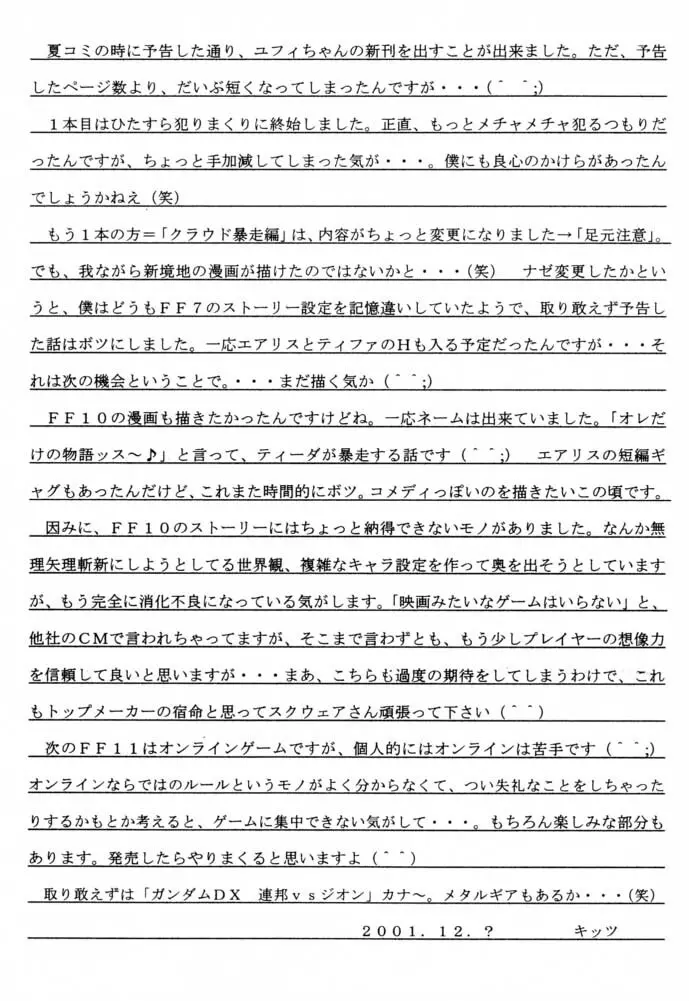 夏コミの時に予告した通り、ユフィちゃんの新刊を出すことが出来ました。ただ、予告
したページ数より、だいぶ短くなってしまったんですが・・・(＾ ＾;)
１本目はひたすら犯りまくりに終始しました。正直、もっとメチャメチャ犯るつもりだ
ったんですが、ちょっと手加減してしまった気が・・・。僕にも良心のかけらがあったん
でしょうかねえ（笑）
もう１本の方＝「クラウド暴走編」は、内容がちょっと変更になりました→「足元注意」。
でも、我ながら新境地の漫画が描けたのではないかと・・・（笑）　ナゼ変更したかとい
うと、僕はどうもＦＦ７のストーリー設定を記憶違いしていたようで、取り敢えず予告し
た話はボツにしました。一応エアリスとティファのＨも入る予定だったんですが・・・そ
れは次の機会ということで。・・・まだ描く気か（＾＾;）
ＦＦ１０の漫画も描きたかったんですけどね。一応ネームは出来ていました。「オレだ
けの物語ッス～♪」と言って、ティーダが暴走する話です（＾＾;）　エアリスの短編ギ
ャグもあったんだけど、これまた時間的にボツ。コメディっぽいのを描きたいこの頃です。
因みに、ＦＦ１０のストーリーにはちょっと納得できないモノがありました。なんか無
理矢理斬新にしようとしてる世界観、複雑なキャラ設定を作って奥を出そうとしています
が、もう完全に消化不良になっている気がします。「映画みたいなゲームはいらない」と、
他社のＣＭで言われちゃってますが、そこまで言わずとも、もう少しプレイヤーの想像力
を信頼して良いと思いますが・・・まあ、こちらも過度の期待をしてしまうわけで、これ
もトップメーカーの宿命と思ってスクウェアさん頑張って下さい（＾＾）
次のＦＦ１１はオンラインゲームですが、個人的にはオンラインは苦手です（＾＾;）
オンラインならではのルールというモノがよく分からなくて、つい失礼なことをしちゃった
りするかもとか考えると、ゲームに集中できない気がして・・・。もちろん楽しみな部分も
あります。発売したらやりまくると思いますよ（＾＾）
取り敢えずは「ガンダムＤＸ　連邦ｖｓジオン」カナ～。メタルギアもあるか・・・（笑）
２００１．１２．？　　　キッツ